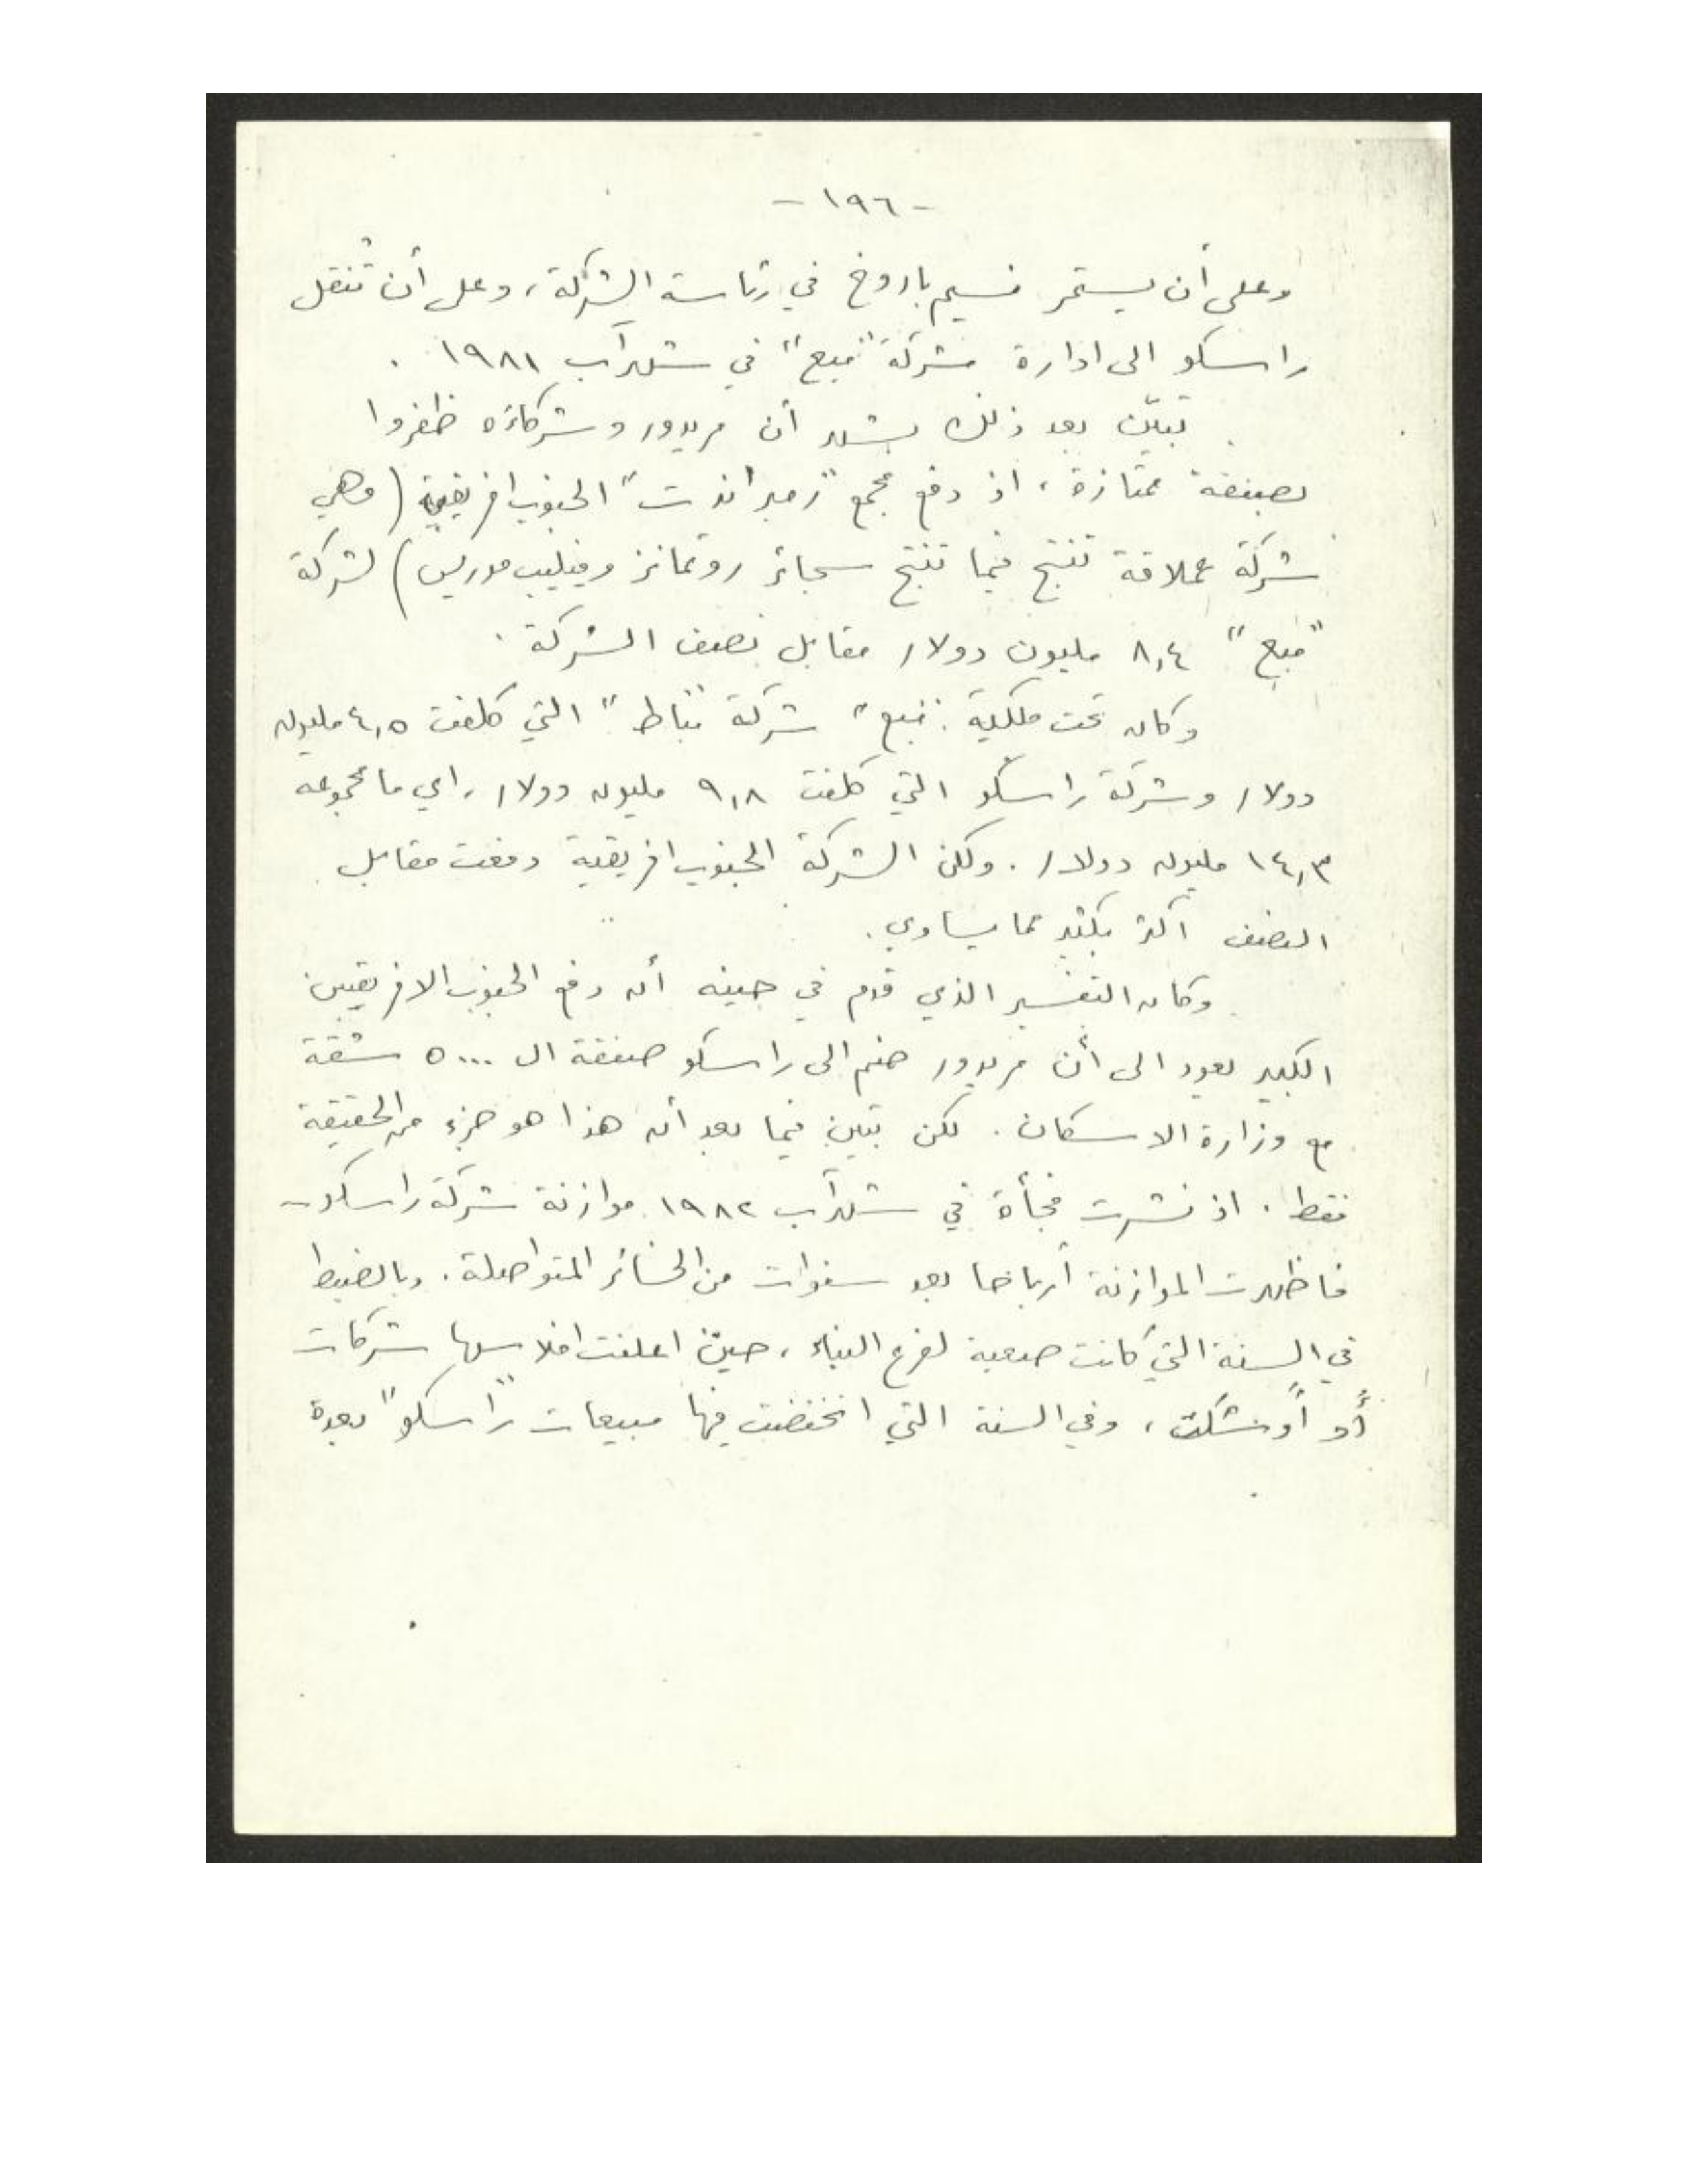 - ١٩٦ -
وعلى أن يستمر نسيم باروخ في رئاسة الشركة، وعلى أن تُنقل
راسكو الى ادارة شركة "نبع" في شهر آب ١٩٨١ .
تبيّن بعد ذلك بشهر أن مريدور وشركاءَه ظفروا
بصفقة ممتازة، اذ دفع مجمع "رمبرانذت" الجنوب افريقية (وهي
شركة عملاقة تنتج فيما تنتج سجائر روتمانز وفيليب موريس) لشركة
"نبع" ٨,٤ مليون دولار مقابل نصف الشركة .
وكان تحت ملكية "نبع" شركة "نباط" التي كلفت ٤,٥ مليون
دولار وشركة راسكو التي كلفت ٩,٨ مليون دولار، اي ما مجموعه
١٤,٣ مليون دولار. ولكن الشركة الجنوب افريقية دفعت مقابل
النصف اكثر بكثير مما يساوي.
وكان التفسير الذي قدم في حينه أن دفع الجنوب الافريقيين
الكبير يعود الى أن مريدور ضم الى راسكو صفقة ال ٥٠٠٠ شقة
مع وزارة الاسكان. لكن تبين فيما بعد أن هذا هو جزء من الحقيقة
فقط. اذ نشرت فجأة في شهر آب ١٩٨٢ موازنة شركة راسكو -
فاظهرت الموازنة أرباحا بعد سنوات من الخسائر المتواصلة. وبالضبط
في السنة التي كانت صعبة لفرع البناء، حين اعلنت افلاسها شركات
أو أوشكت، وفي السنة التي انخفضت فيها مبيعات "راسكو" بعدة